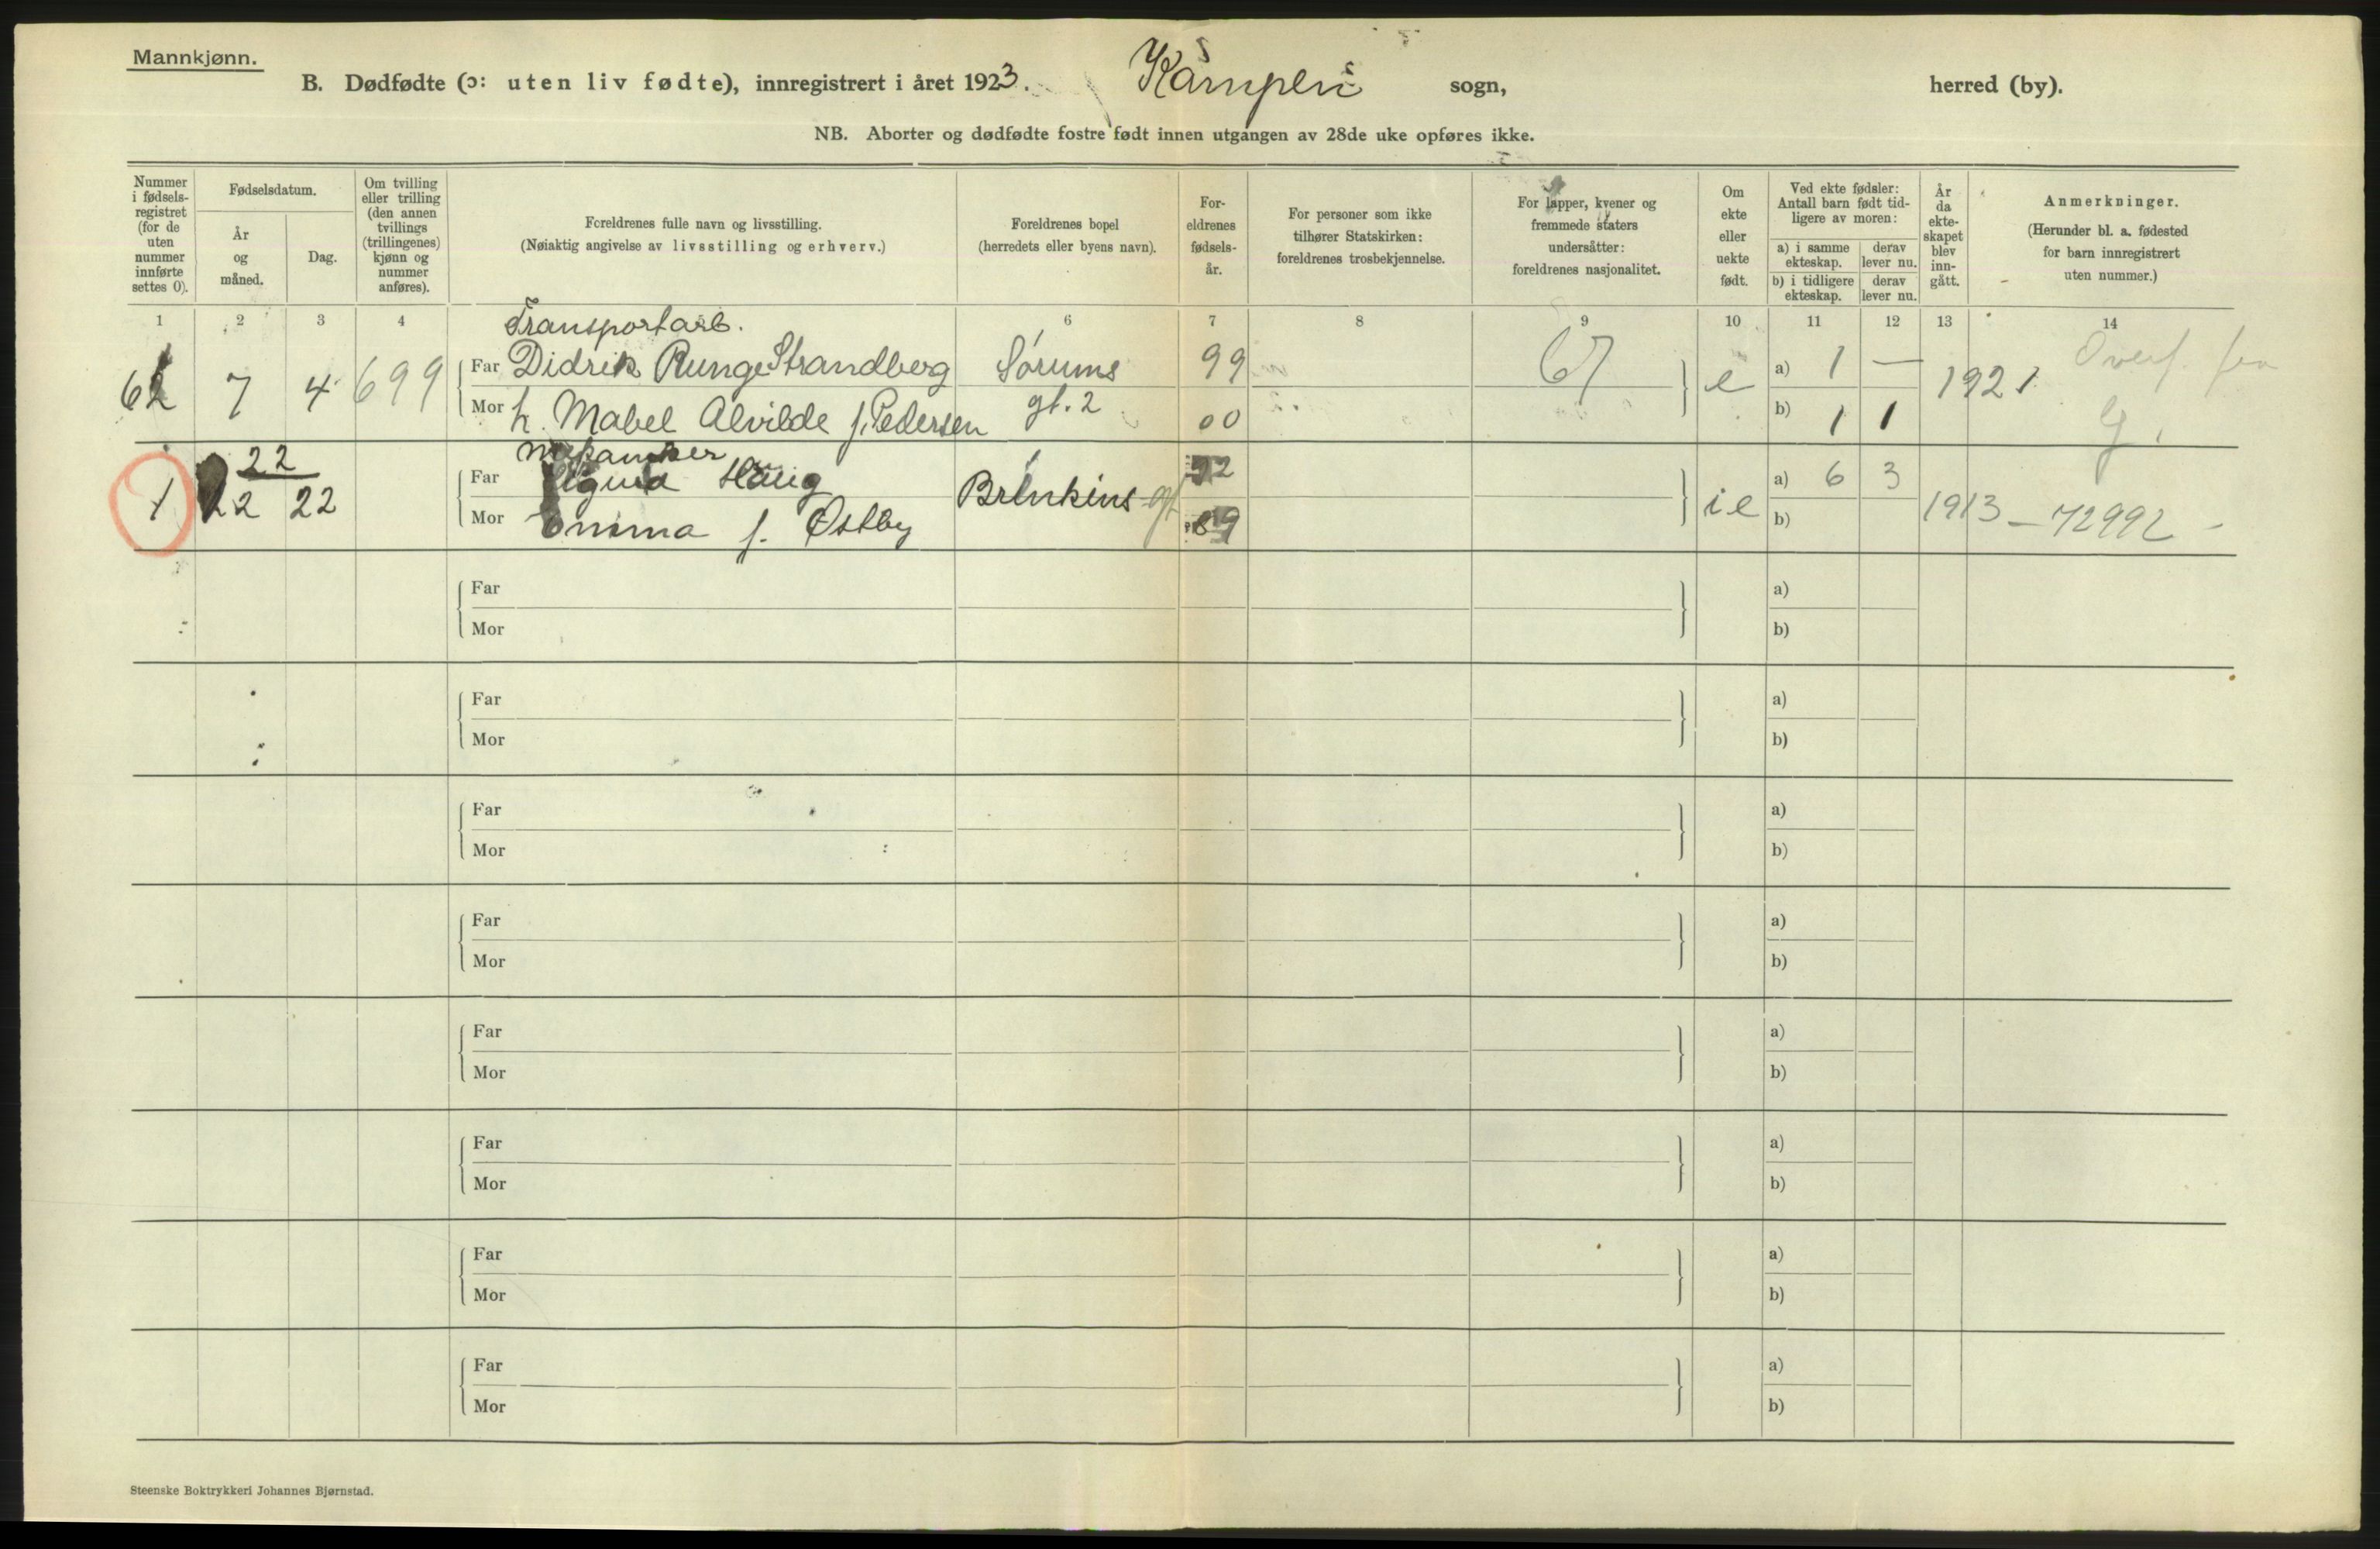 Mannkjønn.
B. Dødfødte (ɔ: uten liv fødte), innregistrert i året 1923. Kampen sogn, herred (by).
NB. Aborter og dødfødte fostre født innen utgangen av 28de uke opføres ikke.
Nummer i fødsels-registret (for de uten nummer innførte settes 0).
Fødselsdatum.
År og måned.
Dag.
Om tvilling eller trilling (den annen tvillings (trillingenes) kjønn og nummer anføres).
Foreldrenes fulle navn og livsstilling.
(Nøiaktig angivelse av livsstilling og erhverv.)
Foreldrenes bopel
(herredets eller byens navn).
For-eldrenes fødsels-år.
For personer som ikke tilhører Statskirken: foreldrenes trosbekjennelse.
For lapper, kvener og fremmede staters undersåtter: foreldrenes nasjonalitet.
Om ekte eller uekte født.
Ved ekte fødsler: Antall barn født tid-ligere av moren:
a) i samme ekteskap.
derav lever nu.
b) i tidligere ekteskap.
derav lever nu.
År da ekte-skapet blev inn-gått.
Anmerkninger.
(Herunder bl. a. fødested for barn innregistrert uten nummer.)
1 2 3 4 6 7 8 9 10 11 12 13 14
Transportarb.
62 7 4 699 Far Didrik Runge Strandberg Sørums 99 67 e a) 1 — 1921 Overf. fra
Mor h. Mabel Alvilde f. Pedersen gt. 2 00 b) 1 1 G.
mekaniker
22
1 12 22 Far Sigurd Haug Brinkens gt 92 ie a) 6 3 1913 — 72992 -
Mor Emma f. Østby 89 b)
Far a)
Mor b)
Far a)
Mor b)
Far a)
Mor b)
Far a)
Mor b)
Far a)
Mor b)
Far a)
Mor b)
Far a)
Mor b)
Far a)
Mor b)
Steenske Boktrykkeri Johannes Bjørnstad.